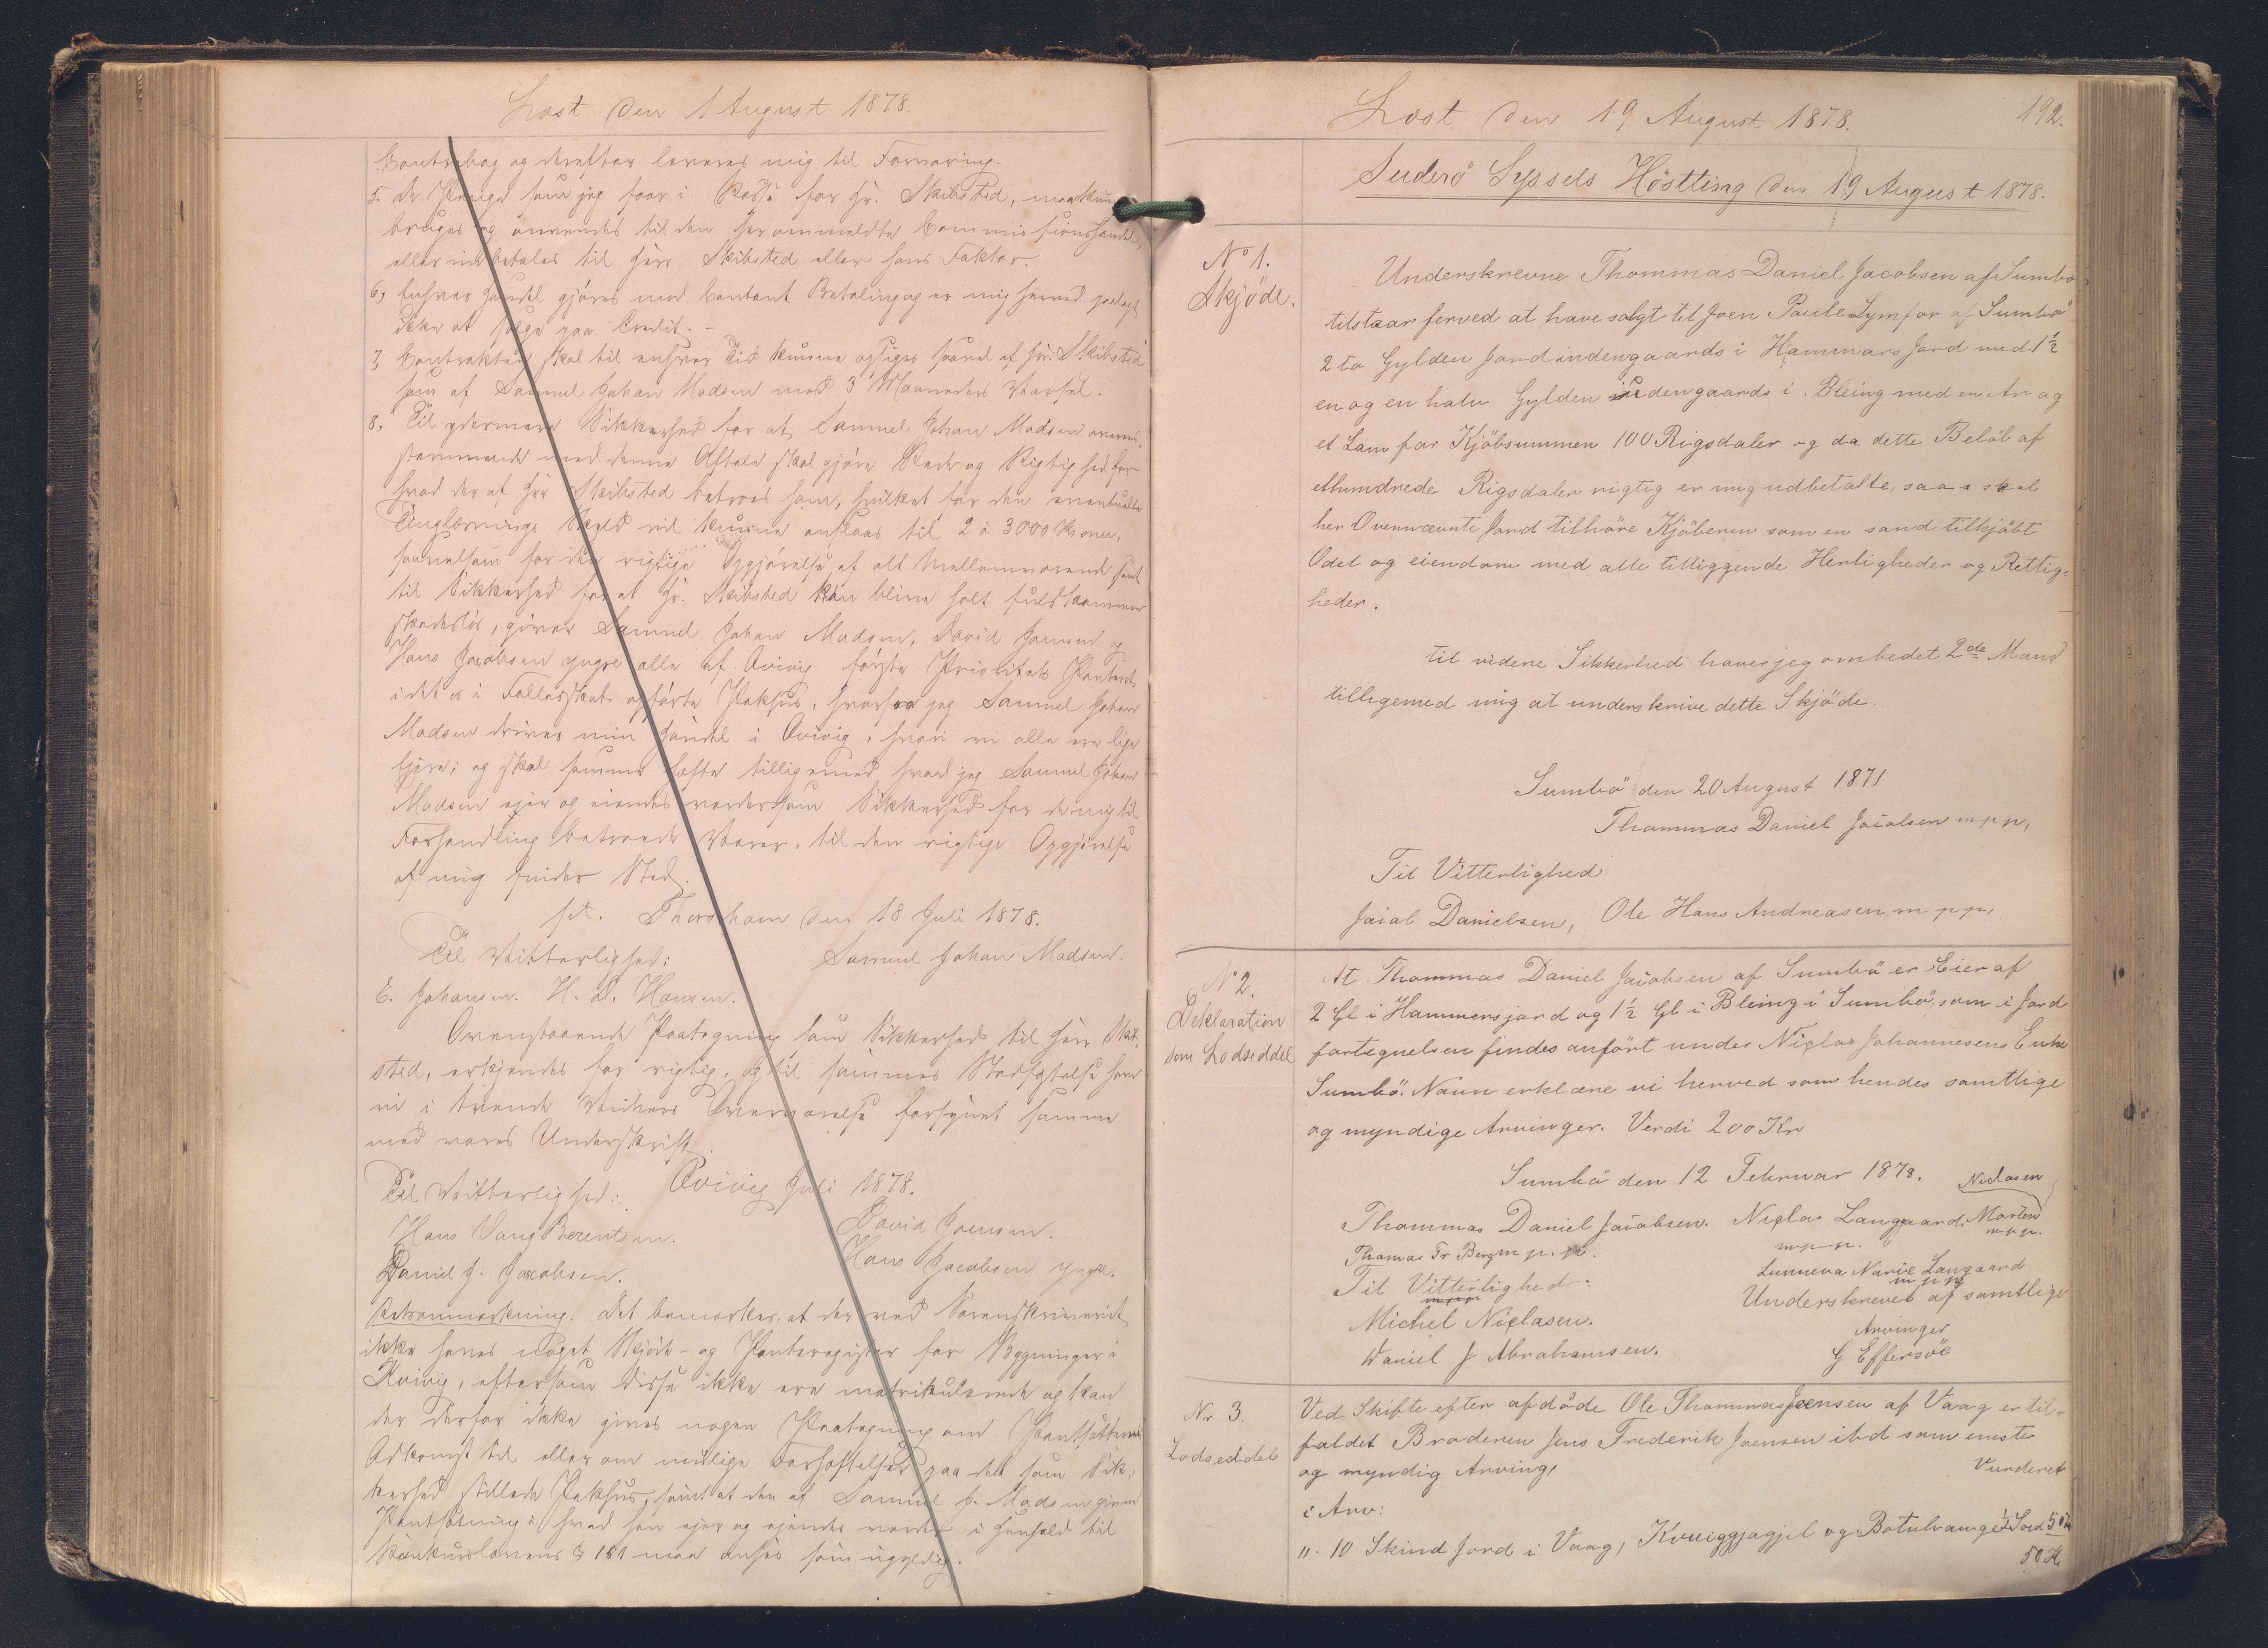 Læst den 1 August 1878.
Contrabog og derefter leveres mig til Forvaring.
5. De Penge som jeg faar i Kassa for Hr. Skibsted, maa kun
bruges og anvendes til den her ommeldte Commissionshandel,
eller indbetales til Herr Skibsted eller hans Faktor.
6, Enhver Handel gjøres mod Contant Betaling og er mig herved paalagt
ikke at sælge paa Credit. -
7, Contrakten skal til enhver Tid kunne opsiges saavel af Hr. Skibsted
som af Samuel Johan Madsen med 3 Maaneders Varsel.
8. Til ydermere Sikkerhed for at Samuel Johan Madsen overens-
stemmende med denne Aftale skal gjøre Rede og Rigtighed for
hvad der af Hr Skibsted betroes ham, hvilket for den eventuelle
Tinglæsnings Skyld vil kunne anslaaes til 2 à 3000 Kroner,
saavelsom for den rigtige Opgjørelse af alt Mellemværende samt
til Sikkerhed for at Hr. Skibsted kan blive holt fuldkommen
skadesløs, giver Samuel Johan Madsen, David Joensen og
Hans Jacobsen yngre alle af Qvivig første Prioritets Panteret
i det os i Fællesskab opførte Pakhus, hvorfra jeg Samuel Johan
Madsen driver min Handel i Qvivig, hvori vi alle ere lige
Ejere; og skal samme hæfte tilligemed hvad jeg Samuel Johan
Madsen ejer og eiendes vorder som Sikkerhed for de mig til
Forhandling betroede Varer, til den rigtige Opgjørelse
af mig finder Sted.
pt. Thorshavn den 18 Juli 1878.
Til Vitterlighed: Samuel Johan Madsen.
E. Johansen. H. D. Hansen.
Ovenstaaende Paategning som Sikkerhed til Herr Skib-
sted, erkjendes for rigtig, og til sammes Stadfæstelse have
vi i tvende Vidners Overværelse forsynet samme
med vores Underskrift.
Qvivig Juli 1878.
Til Vitterlighed:
Hans Vang Berentsen. David Joensen.
Daniel J. Jacobsen. Hans Jacobsen yngre.
Retsanmærkning. Det bemærkes, at der ved Sorenskriveriet
ikke haves noget Skjøde- og Panteregister for Bygninger i
Kvivig, eftersom disse ikke ere matrikulerede og kan
der derfor ikke gives nogen Paategning om Pantsætterens
Adkomst til eller om mulige Forhæftelser paa det som Sik-
kerhed stillede Pakhus, samt at den af Samuel J. Madsen givne
Pantsætning i hvad han ejer og ejendes vorder i Henhold til
Konkurslovens § 151 maa anses som ugyldig.
Læst den 19 August 1878.
192.
Suderö Syssels Höstting den 19 August 1878.
No 1.
Skjöde.
Underskrevne Thommas Daniel Jacobsen af Sumbö
tilstaar herved at have solgt til Joen Poule Lymfor af Sumbö
2 to Gylden Jord indengaards i Hammars Jord med 1½
en og en halv Gylden indengaards i Bleing med en An og
et Lam for Kjöbsummen 100 Rigsdaler og da dette Belöb af
ethundrede Rigsdaler rigtig er mig udbetalte, saa a skal
her Ovennævnte Jord tilhöre Kjöberen som en sand tilkjöbt
Odel og eiendom med alle tilliggende Herligheder og Rettig-
heder.
til videre Sikkerhed haver jeg ombedet 2de Mand
tilligemed mig at underskrive dette Skjöde.
Sumbö den 20 August 1871
Thommas Daniel Jacobsen m p p,
Til Vitterlighed
Jaiab Danielsen, Ole Hans Andreasen m p p,
No 2.
Deklaration
som Lodseddel
At Thommas Daniel Jacobsen af Sumbö er Eier af
2 Gl i Hammersjord og 1½ Gl i Bleing i Sumbö, som i Jord
fortegnelsen findes anført under Niclas Johannesens Enke
Sumbö. Navn erklære vi herved som hendes samtlige
og myndige Arvinger. Verdi 200 Kr
Sumbö den 12 Februar 1878.
Thommas Daniel Jaiobsen. Niclas Langgaard. Morten Niclasen
m p p.
Thomas Fr Berg m p. p. m p p.
Sunneva Narie Langaard
m p p
Til Vitterlighed: Underskrevet af samtlige
Michel Niclasen. Arvinger
Daniel J Abrahamsen. G Effersöe
Nr 3.
Lodseddel
Ved Skifte efter afdöde Ole Thommas Joensen af Vaag er til-
faldet Broderen Jens Frederik Joensen ibd som eneste
og myndig Arving,
Vurderet
i Arv:
"- 10 Skind Jord i Vaag, Kvuiggjagjil og Botulvange
50 K